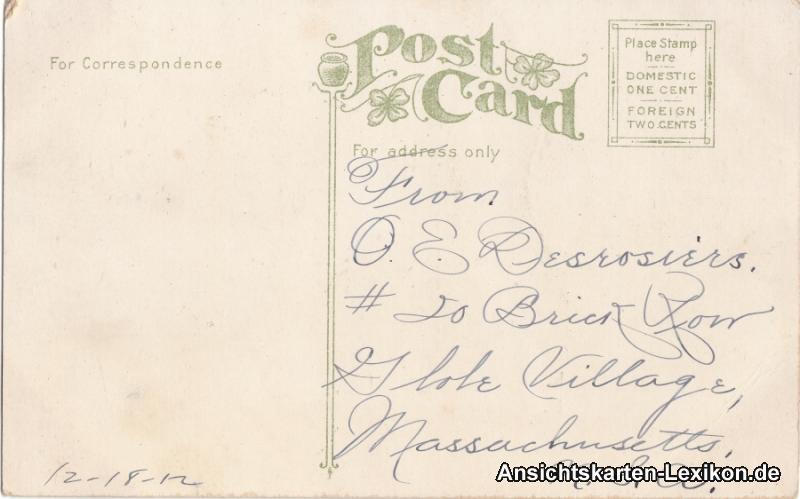 For Correspondence
Post Card
Place Stamp
here
DOMESTIC
ONE CENT
FOREIGN
TWO CENTS
For address only
From
O. E. Desrosiers.
# 20 Brick Row
Globe Village,
Massachusetts,
U.S.A.
12-18-12
Ansichtskarten-Lexikon.de